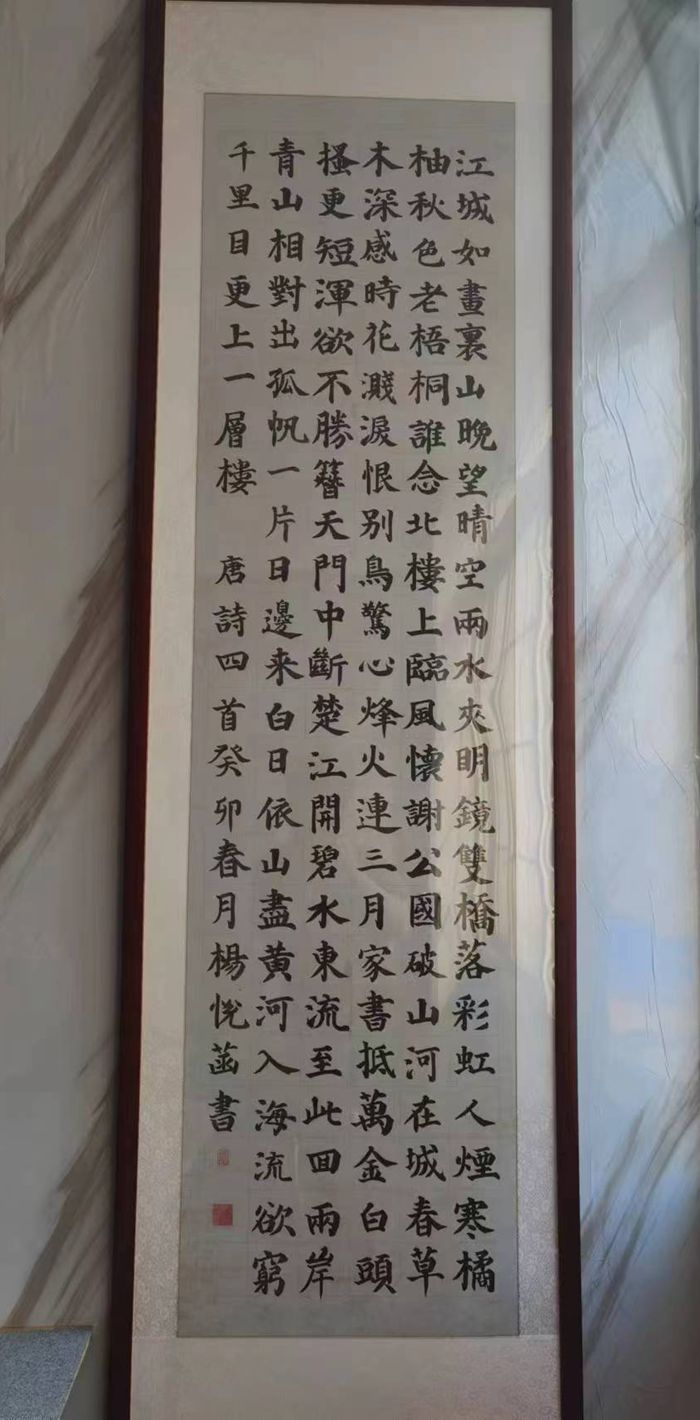 江城如畫裏山晚望晴空兩水夾明鏡雙橋落彩虹人煙寒橘
柚秋色老梧桐誰念北樓上臨風懷謝公國破山河在城春草
木深感時花濺淚恨别鳥驚心烽火連三月家書抵萬金白頭
搔更短渾欲不勝簪天門中斷楚江開碧水東流至此回兩岸
青山相對出孤帆一片日邊来白日依山盡黄河入海流欲窮
千里目更上一層樓 唐詩四首癸卯春月楊悅菡書